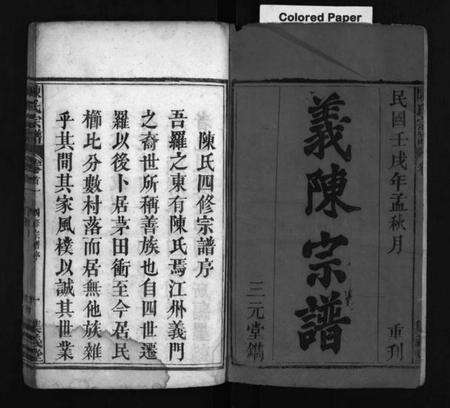 Colored Paper
民國壬戌年孟秋月
重刊
義陳宗譜
三元堂鐫
陳氏四修宗譜序
吾羅之東有陳氏焉江州義門
之裔世所稱善族也自四世遷
羅以後卜居茅田衝至今居民
櫛比分數村落而居無他族雜
乎其間其家風樸以誠其世業
陳氏宗譜